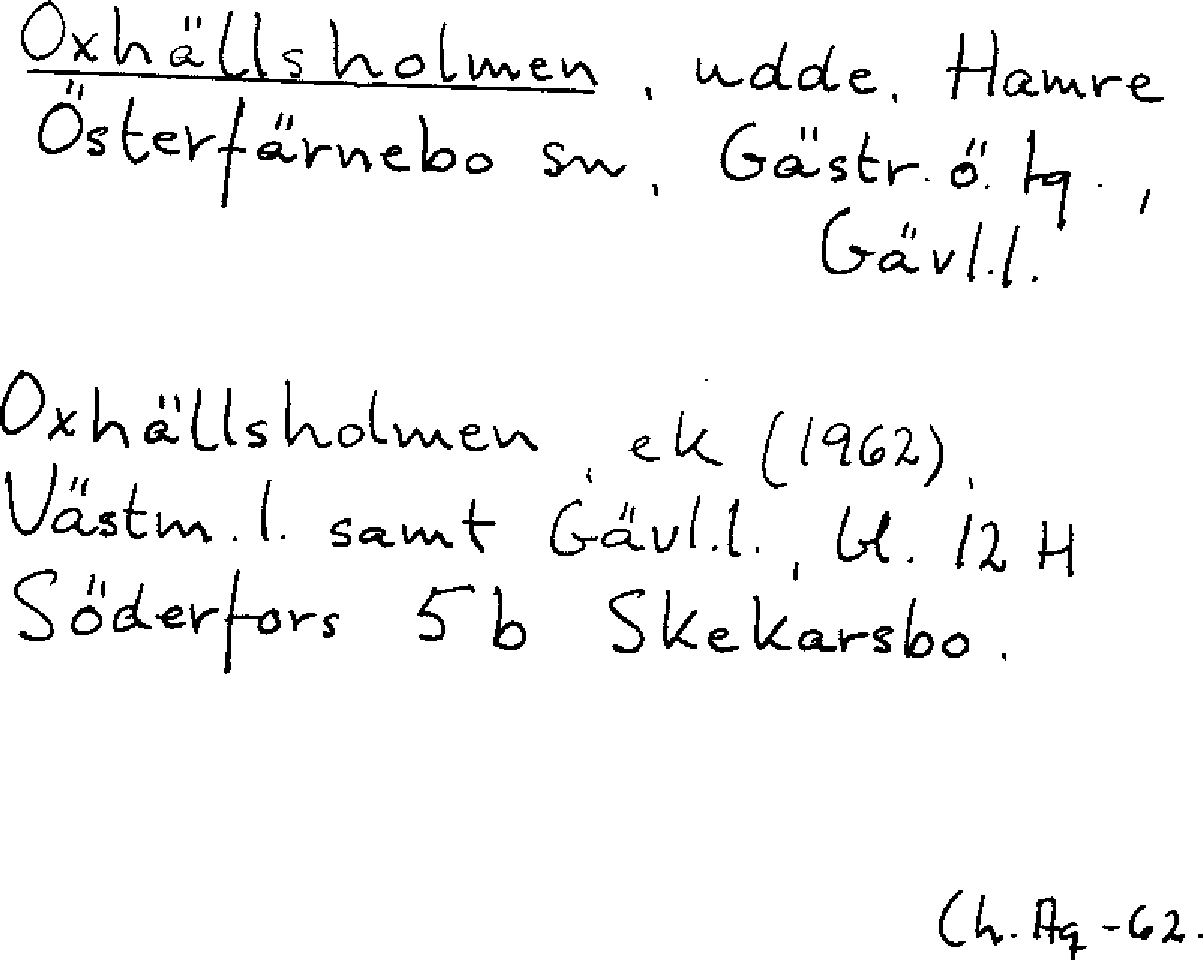 Oxhällsholmen, udde, Hamre
Österfärnebo sn, Gästr. ö. tg.,
Gävl.l.
Oxhällsholmen, ek (1962),
Västm. l. samt Gävl.l., bl. 12 H
Söderfors 5 b Skekarsbo.
Ch. Ag -62.